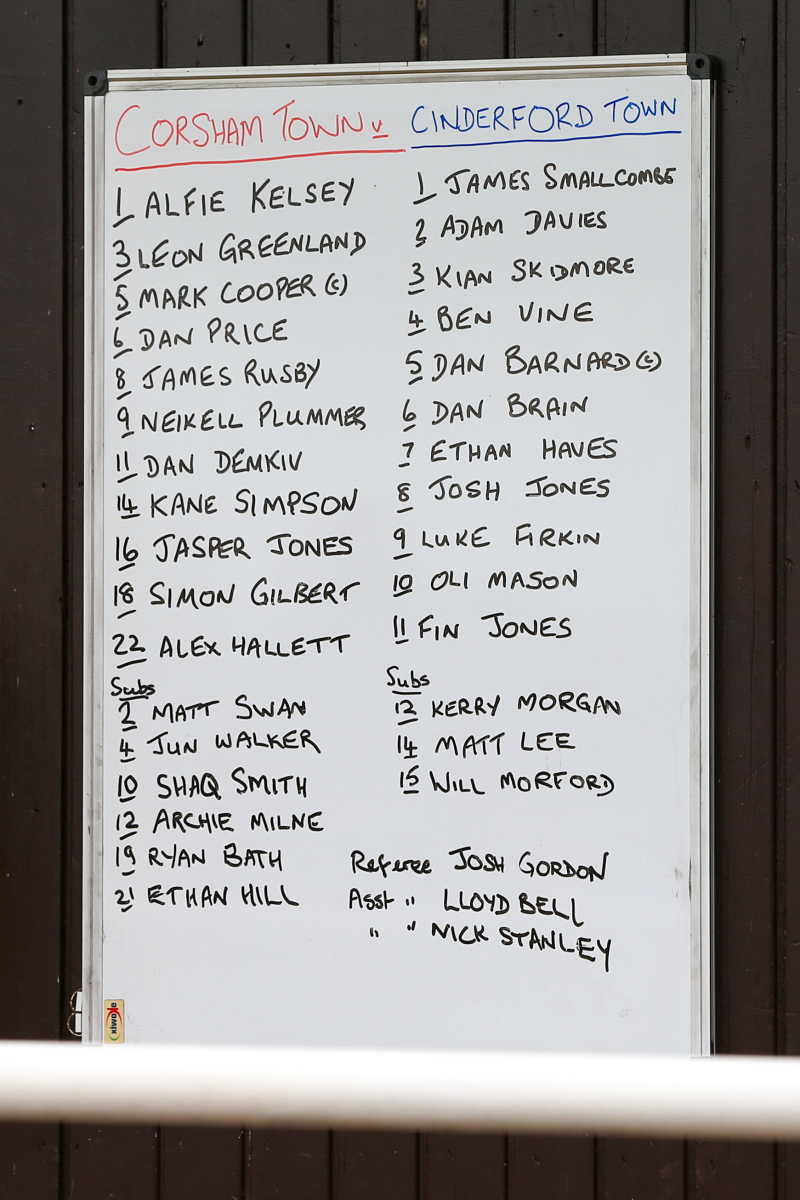 CORSHAM TOWN v CINDERFORD TOWN
1 ALFIE KELSEY
3 LEON GREENLAND
5 MARK COOPER (C)
6 DAN PRICE
8 JAMES RUSBY
9 NEIKELL PLUMMER
11 DAN DEMKIV
14 KANE SIMPSON
16 JASPER JONES
18 SIMON GILBERT
22 ALEX HALLETT
Subs
2 MATT SWAN
4 JUN WALKER
10 SHAQ SMITH
12 ARCHIE MILNE
19 RYAN BATH
21 ETHAN HILL
1 JAMES SMALLCOMBE
2 ADAM DAVIES
3 KIAN SKIDMORE
4 BEN VINE
5 DAN BARNARD (C)
6 DAN BRAIN
7 ETHAN HAVES
8 JOSH JONES
9 LUKE FIRKIN
10 OLI MASON
11 FIN JONES
Subs
12 KERRY MORGAN
14 MATT LEE
15 WILL MORFORD
Referee JOSH GORDON
Asst " LLOYD BELL
" " NICK STANLEY